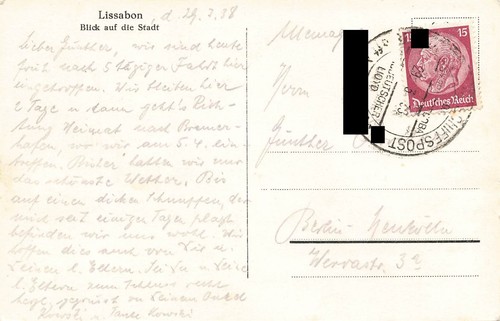 Lissabon , d. 29.3.38
Blick auf die Stadt
Lieber Günther, wir sind heute
früh nach 5 tägiger Fahrt hier
eingetroffen. Wir bleiben hier
2 Tage u. dann geht's Rich-
tung Heimat nach Bremer-
hafen, wo wir am 5.4. ein-
treffen. Bisher hatten wir nur
das schönste Wetter. Bis
auf einen dicken Schnupfen, der
mich seit einigen Tagen plagt
befinden wir uns wohl. Wir
hoffen dies auch von Dir u.
Deinen l. Eltern. Sei Du u. Deine
l. Eltern zum Schluss recht
herzl. gegrüsst von Deinem Onkel
u. Tante
Herrn
Günther
Berlin-Neukölln
Werrastr. 3
15
Deutsches Reich
SCHIFFSPOST
DEUTSCHER
LLOYD